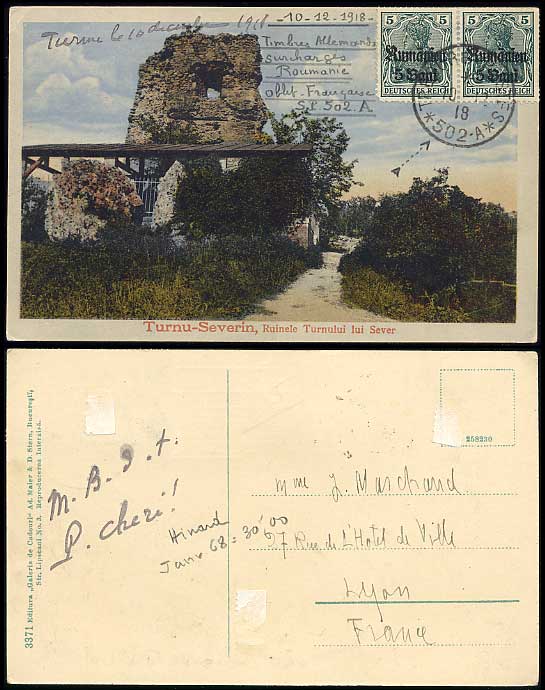 Turnu le 10 decembre 1918
-10-12-1918-
Timbres Allemands
surchargés
Roumanie
oblit. Française
S.P. 502.A
5 5 5 5
Rumänien Rumänien
5 Bani 5 Bani
DEUTSCHES REICH DEUTSCHES REICH
18
*502-A*
Turnu-Severin, Ruinele Turnului lui Sever
3371 Editura „Galeria de Cadouri" Ad. Maier & D. Stern, București,
Str. Lipscani No. 3. Reproducerea Interzisă.
258230
M. B. J. t.
P. cheri!
Hinard
Janv 68 = 30'00
Mme J. Marchand
27 Rue de L'Hotel de Ville
Lyon
France